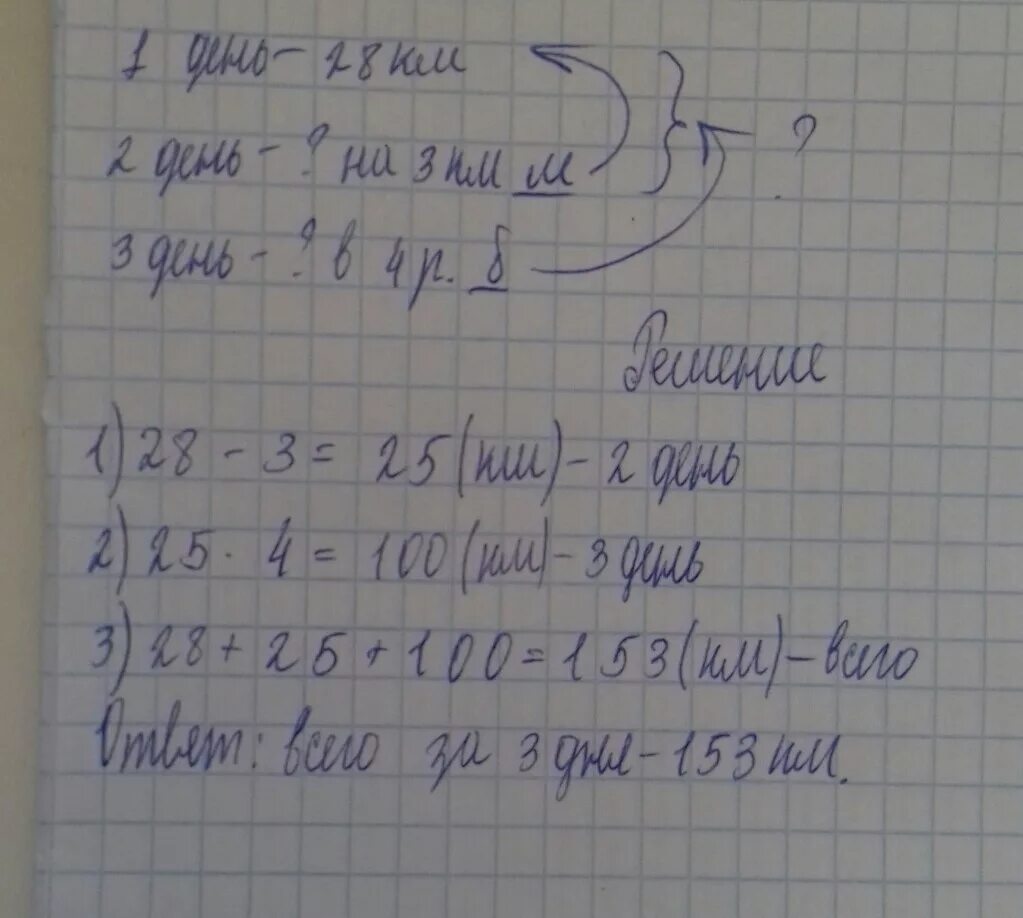 1 день - 28 км
2 день - ? на 3 км м
3 день - ? в 4 р. б
?
Решение
1) 28 - 3 = 25 (км) - 2 день
2) 25 · 4 = 100 (км) - 3 день
3) 28 + 25 + 100 = 153 (км) - всего
Ответ: всего за 3 дня - 153 км.